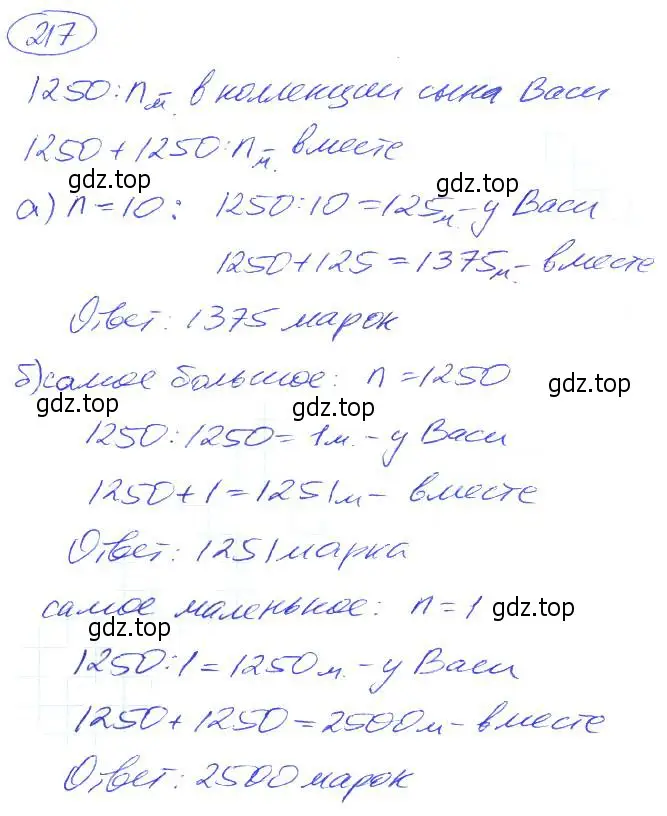 217
1250:n м.- в коллекции сына Васи
1250+1250:n м.- вместе
gdz.top gdz.top gdz.top
а) n=10: 1250:10=125 м.- у Васи
1250+125=1375 м.- вместе
Ответ: 1375 марок
б) самое большое: n=1250
gdz.top gdz.top gdz.top
1250:1250=1 м.- у Васи
1250+1=1251 м- вместе
Ответ: 1251 марка
самое маленькое: n=1
gdz.top gdz.top
1250:1=1250 м.- у Васи
1250+1250=2500 м- вместе
Ответ: 2500 марок